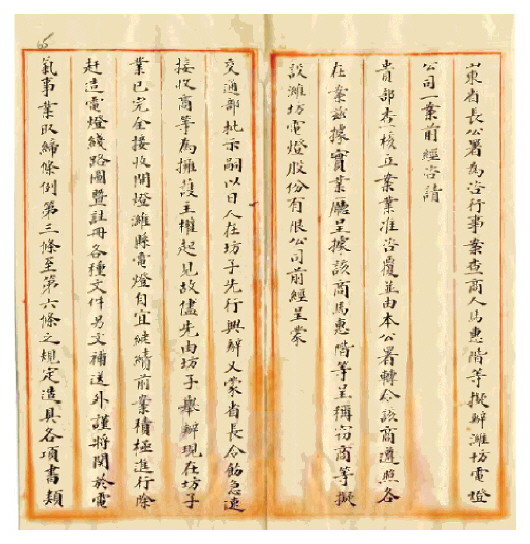 山東省長公署為咨行事案查商人馬惠階等擬辦濰坊電燈
公司一案前經咨請
貴部查核立案業准咨覆並由本公署轉令該商遵照各
在案茲據實業廳呈據該商馬惠階等呈稱竊商等擬
設濰坊電燈股份有限公司前經呈蒙
交通部批示嗣以日人在坊子先行興辦又蒙省長令飭急速
接收商等為擁護主權起見故儘先由坊子舉辦現在坊子
業已完全接收開燈濰縣電燈自宜繼續前業積極進行除
赶造電燈綫路圖暨註冊各種文件另文補送外謹將關於電
氣事業取締條例第三條至第六條之規定造具各項書類